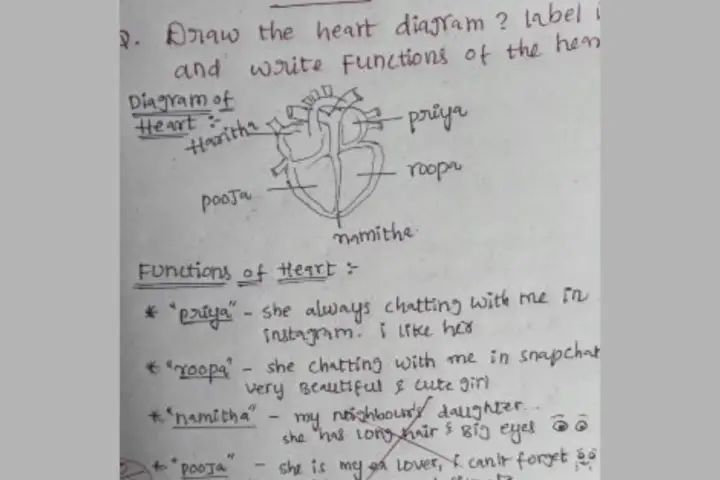 Q. Draw the heart diagram? Label i
and write Functions of the hear
Diagram of
Heart :-
Haritha
priya
pooja
roopa
namitha.
Functions of Heart :-
* "priya" - she always chatting with me in
instagram. i like her
* "roopa" - she chatting with me in snapchat
very Beautiful & cute girl
* "namitha" - my neighbour's daughter..
she has long hair & Big eyes
* "pooja" - she is my ex lover, i can't forget